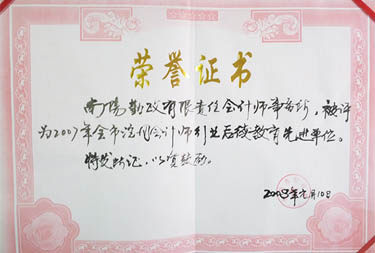 荣誉证书
南阳勤政有限责任会计师事务所，被评
为2007年全市注册会计师行业后续教育先进单位。
特发此证，以资鼓励。
2008年元月10日